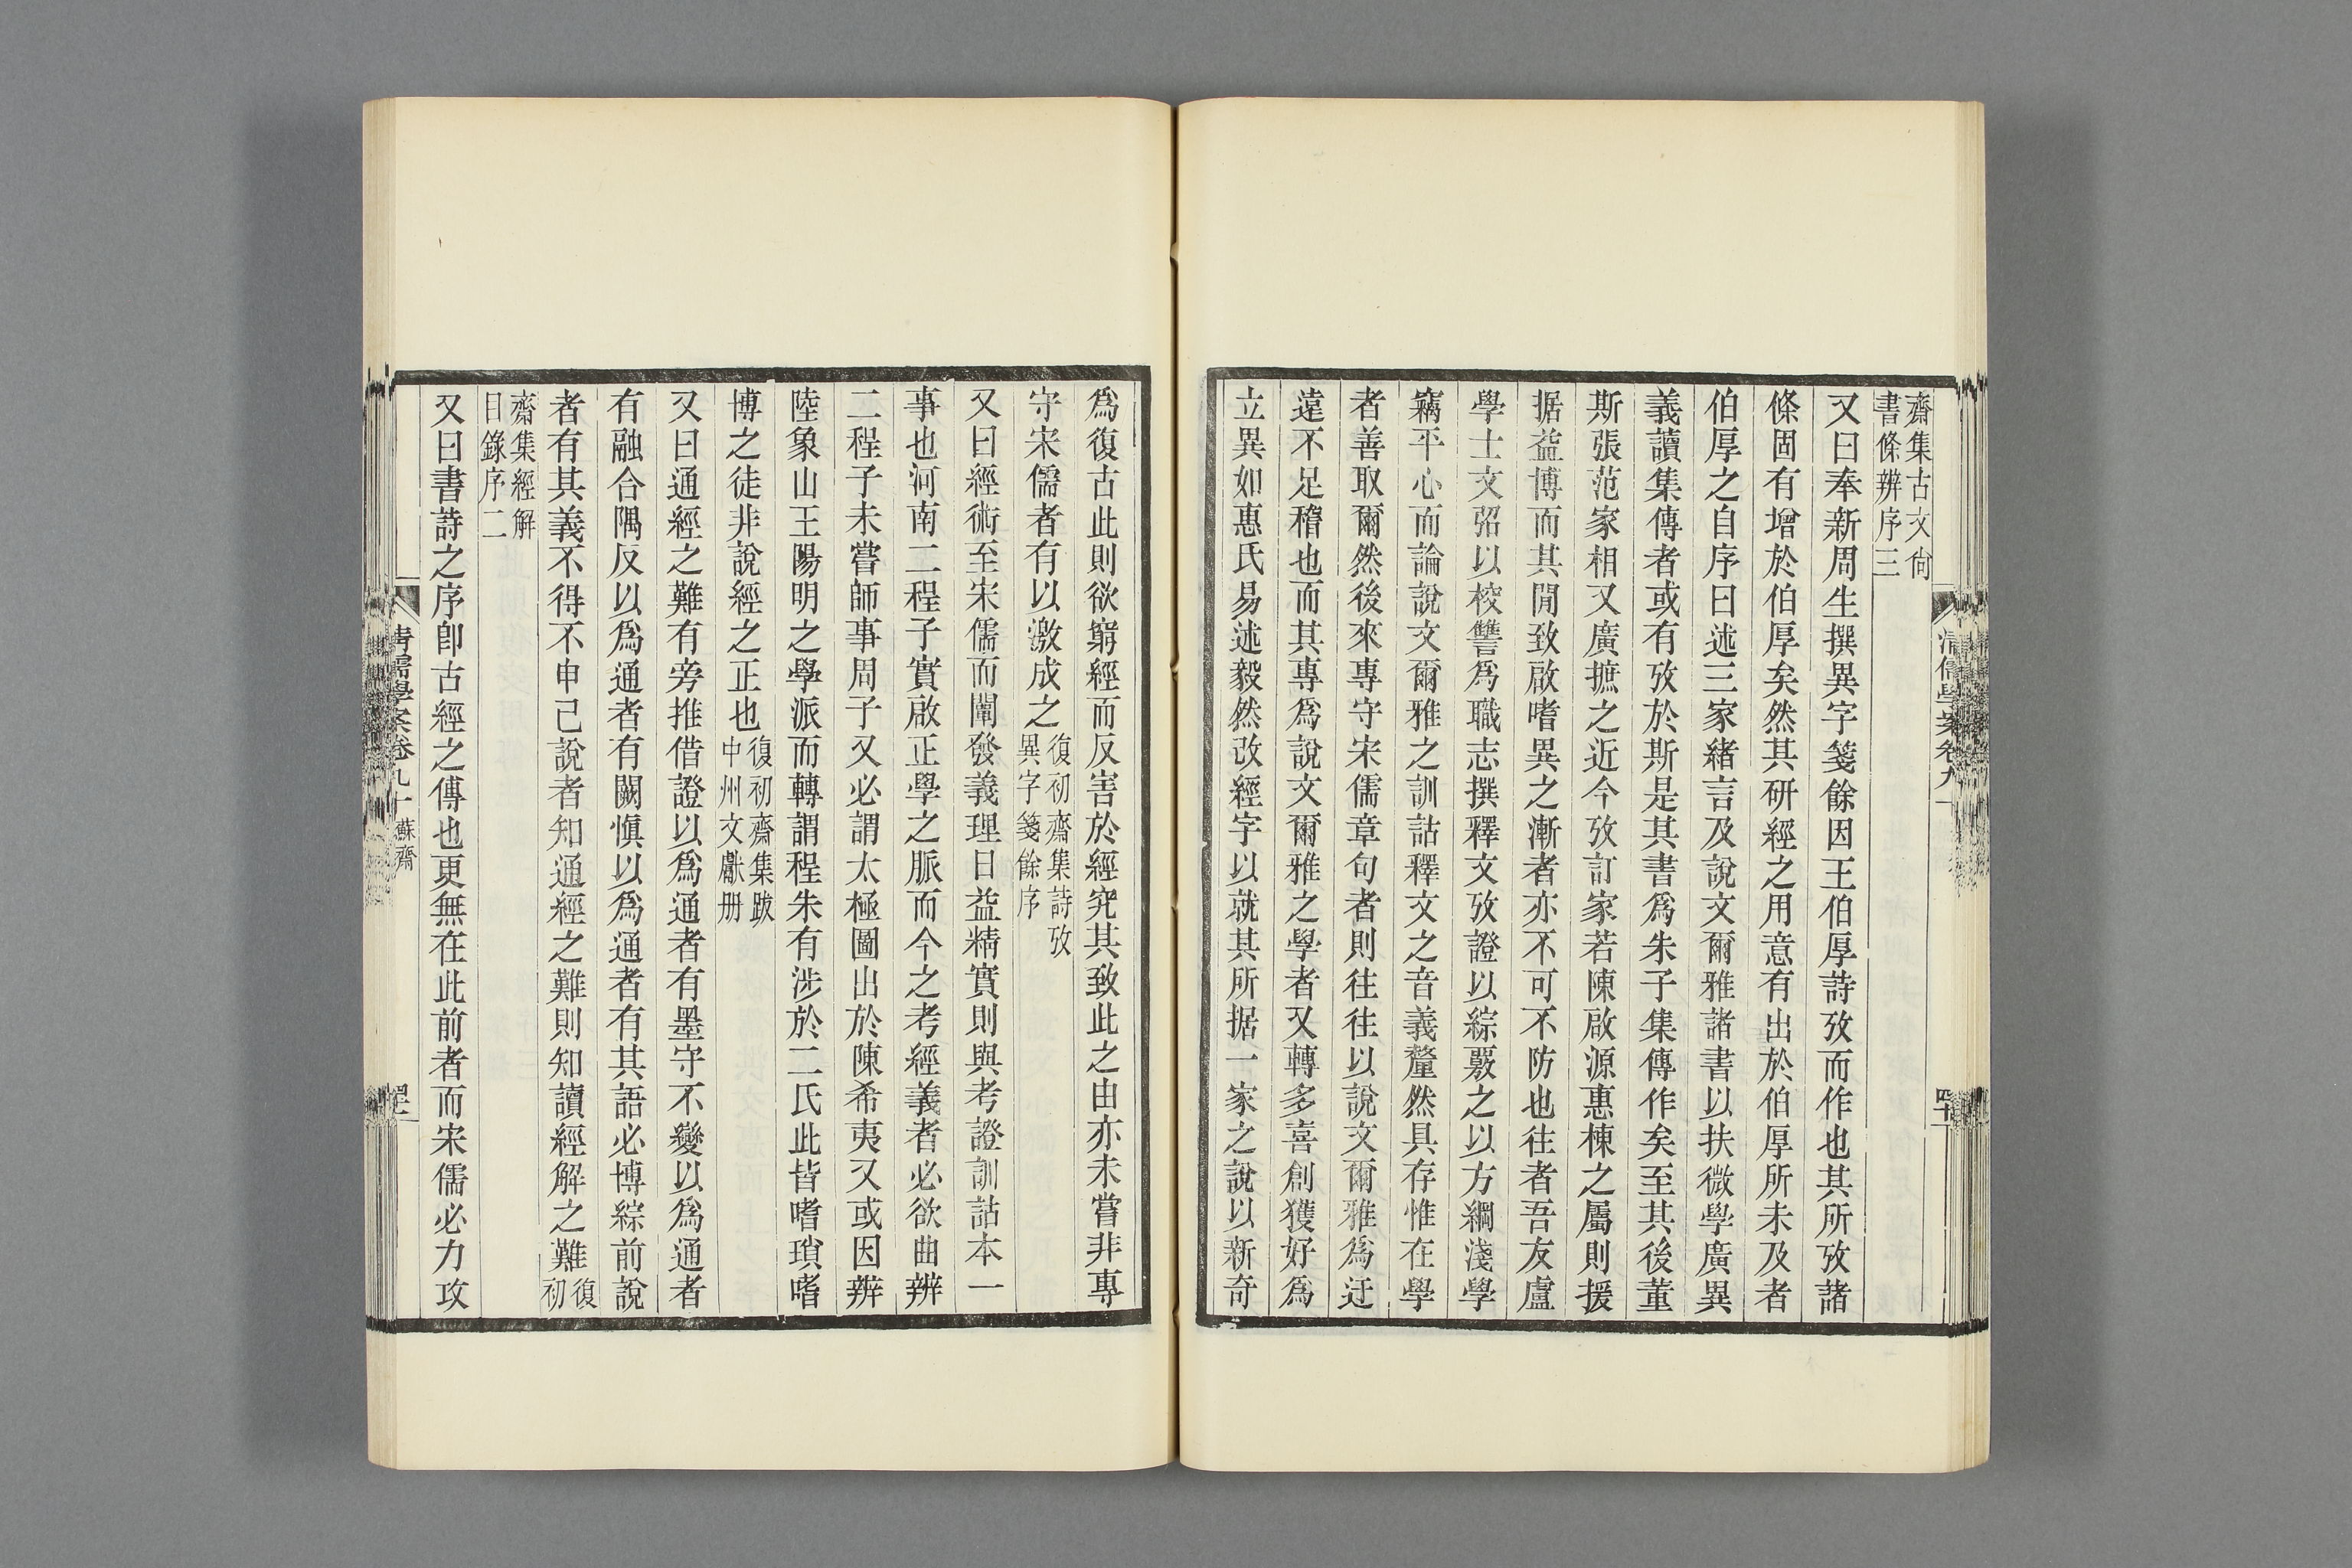 齋集古文尙
書條辨序三
又曰奉新周生撰異字箋餘因王伯厚詩攷而作也其所攷諸
條固有增於伯厚矣然其研經之用意有出於伯厚所未及者
伯厚之自序曰述三家緒言及說文爾雅諸書以扶微學廣異
義讀集傳者或有攷於斯是其書爲朱子集傳作矣至其後董
斯張范家相又廣摭之近今攷訂家若陳啟源惠棟之屬則援
据益博而其閒致啟嗜異之漸者亦不可不防也往者吾友盧
學士文弨以校讐爲職志撰釋文攷證以綜覈之以方綱淺學
竊平心而論說文爾雅之訓詁釋文之音義釐然具存惟在學
者善取爾然後來專守宋儒章句者則往往以說文爾雅爲迂
遠不足稽也而其專爲說文爾雅之學者又轉多喜創獲好爲
立異如惠氏易述毅然改經字以就其所据一家之說以新奇
爲復古此則欲窮經而反害於經究其致此之由亦未嘗非專
守宋儒者有以激成之復初齋集詩攷
異字箋餘序
又曰經術至宋儒而闡發義理日益精實則與考證訓詁本一
事也河南二程子實啟正學之脈而今之考經義者必欲曲辨
二程子未嘗師事周子又必謂太極圖出於陳希夷又或因辨
陸象山王陽明之學派而轉謂程朱有涉於二氏此皆嗜瑣嗜
博之徒非說經之正也復初齋集跋
中州文獻册
又曰通經之難有旁推借證以爲通者有墨守不變以爲通者
有融合隅反以爲通者有闕愼以爲通者有其語必博綜前說
者有其義不得不申己說者知通經之難則知讀經解之難復
初
齋集經解
目錄序二
又曰書詩之序卽古經之傳也更無在此前者而宋儒必力攻
清儒學案卷九十 蘇齋